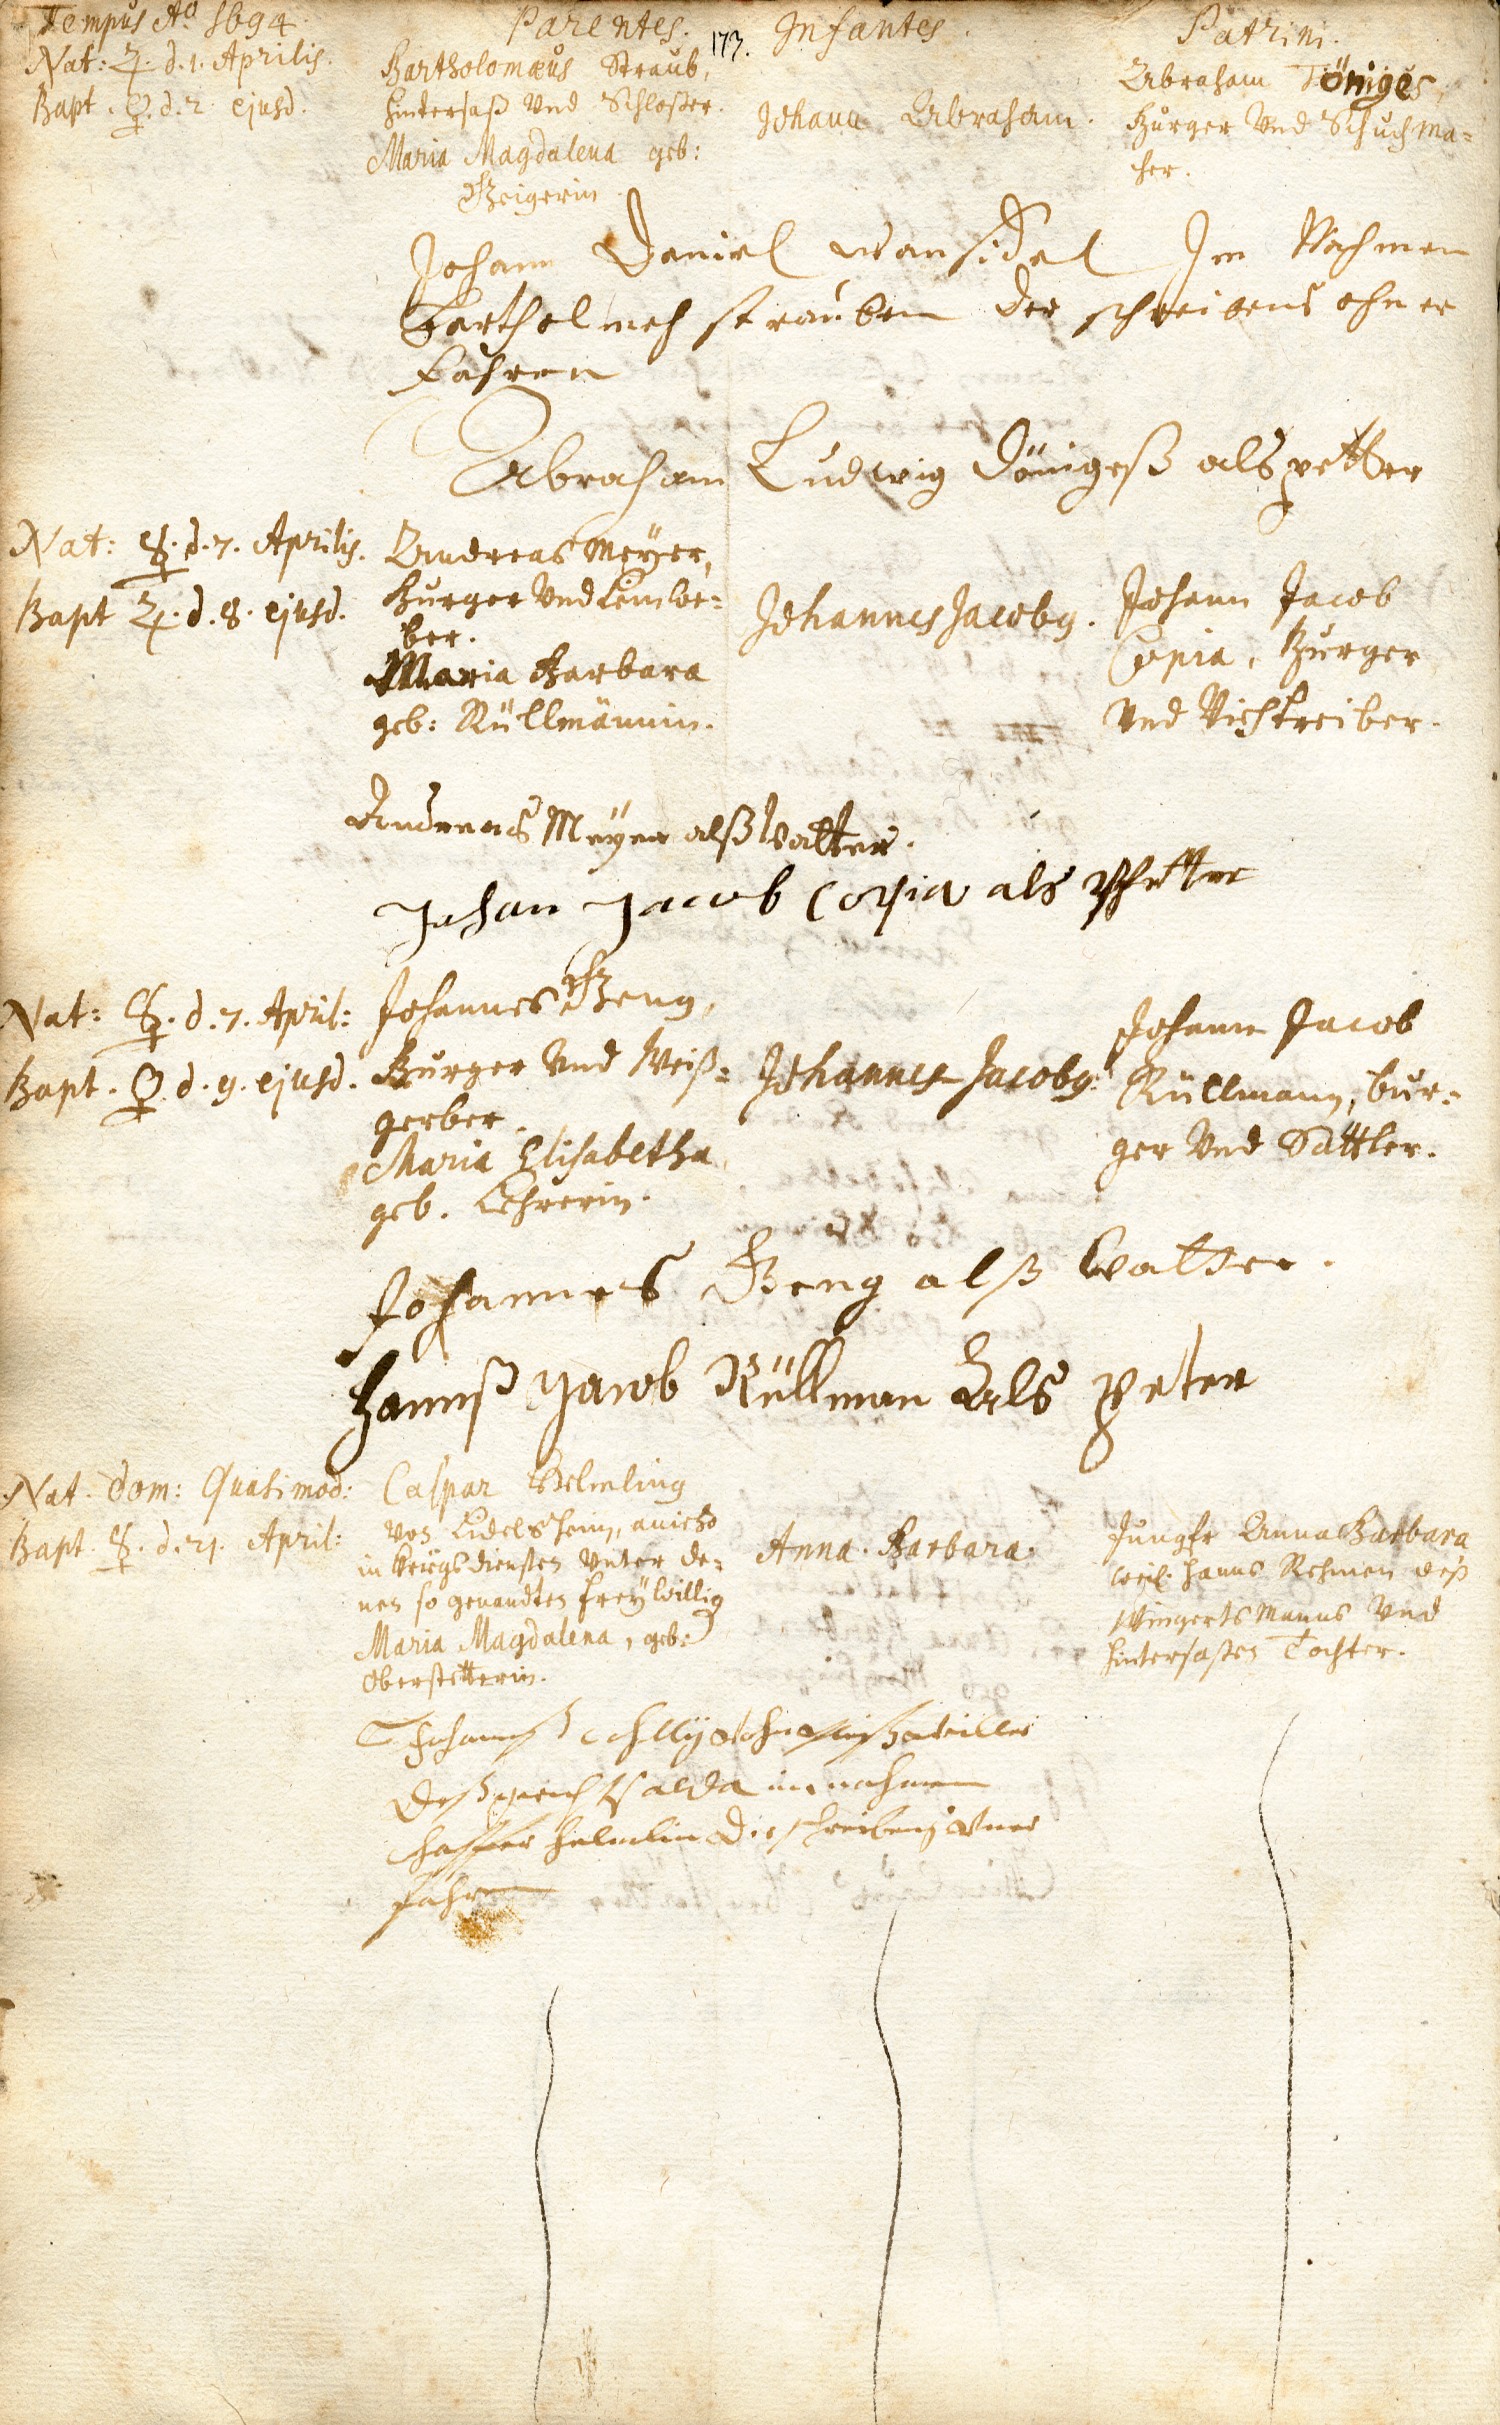 Tempus Aö 1694.
Parentes.
173.
Infantes.
Patrini.
Nat: ♃. d. 1. Aprilis.
Bapt. ♀. d. 2. ejusd.
Bartholomæus Straub,
hintersaß Vnd Schloßer.
Maria Magdalena geb:
Geigerin
Johann Abraham.
Abraham Töniges,
Burger Vnd Schuchma=
cher.
Johann Daniel wansidel Im Nahmen
Barthelmeh strauben der schreibens ohner
fahren
Abraham Ludwig Dönigeß als petter
Nat: ☿. d. 7. Aprilis.
Bapt ♃. d. 8. ejusd.
Andreas Meÿer,
Burger Vnd Leinwe=
ber.
Maria Barbara
geb: Rüllmännin.
Johannes Jacobg.
Johann Jacob
Copia, Burger
Vnd Viehtreiber.
Andreas Meÿer alß Vatter.
Johan Jacob Copia als Phetter
Nat: ☿. d. 7. April:
Bapt. ♀. d. 9. ejusd.
Johannes Geng,
Burger Vnd Weiß=
gerber.
Maria Elisabetha
geb. Lehrerin.
Johannes Jacobg.
Johann Jacob
Rüllmann, bur=
ger Vnd Sattler.
Johannes Geng alß Vatter.
Hannß Jacob Rüllman Als Peter
Nat. dom: Quasimod:
Bapt. ☿. d. 21. April:
Caspar Helmling
von Lidelsheim, anietzo
in kriegsdiensten Vnter de=
nen so genandten freÿwillig
Maria Magdalena, geb:
Oberstetterin.
Anna Barbara.
Jungfr Anna Barbara
weil. Hanns Rehmen deß
Wingertsmanns Vnd
hintersaßen Tochter.
in nahmen
helmlin die schreibens
fahren